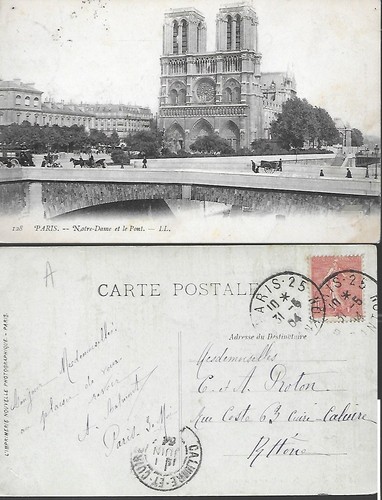 128 PARIS. — Notre-Dame et le Pont. — LL.
A
CARTE POSTALE
PARIS-25
Adresse du Destinataire
L'IMPRIMERIE NOUVELLE PHOTOGRAPHIQUE - PARIS.
Bonjour Mesdemoiselles
au plaisir de vous
revoir
Paris 3
Mesdemoiselles
C et A Proton
Rue Coste 63 Cuire Caluire
Rhône
CALUIRE-ET-CUIRE
1
JUIN
04